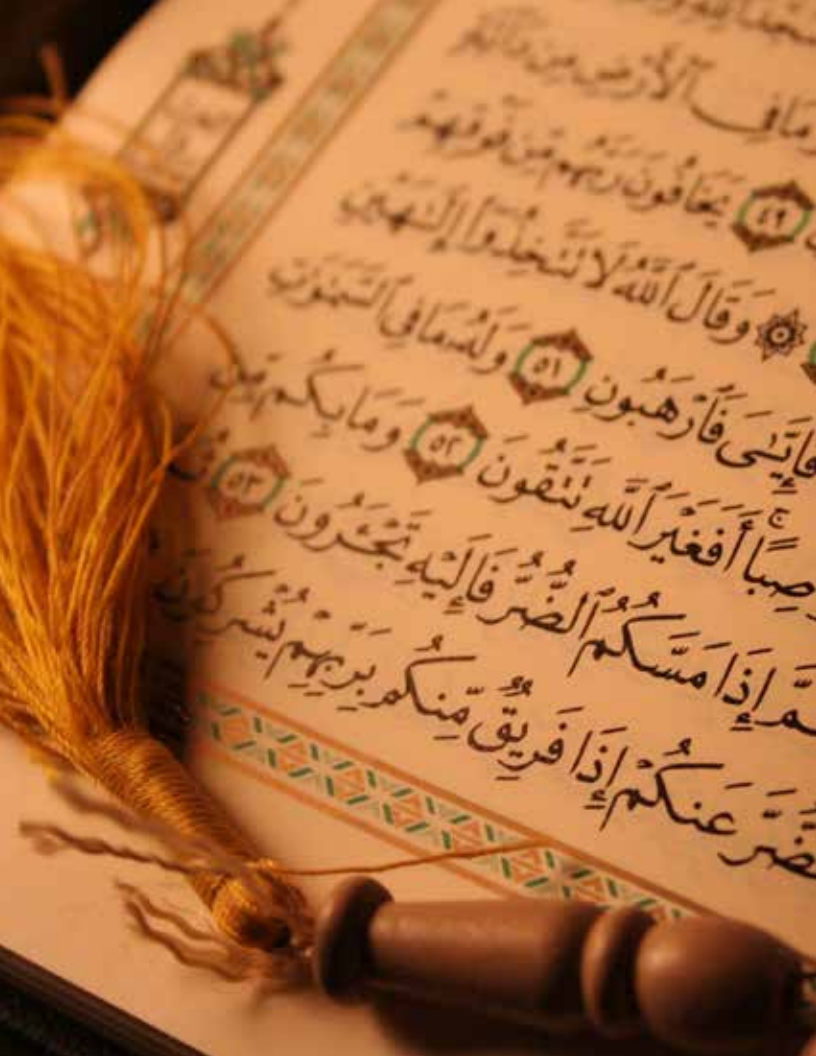 وَمَا فِي ٱلْأَرْضِ مِن دَآبَّةٍ
٤٩ يَخَافُونَ رَبَّهُم مِّن فَوْقِهِمْ
۞ وَقَالَ ٱللَّهُ لَا تَتَّخِذُوٓا۟ إِلَـٰهَيْنِ
فَإِيَّـٰىَ فَٱرْهَبُونِ ٥١ وَلَهُۥ مَا فِي ٱلسَّمَـٰوَٰتِ
وَاصِبًا ۚ أَفَغَيْرَ ٱللَّهِ تَتَّقُونَ ٥٢ وَمَا بِكُم مِّن
ثُمَّ إِذَا مَسَّكُمُ ٱلضُّرُّ فَإِلَيْهِ تَجْـَٔرُونَ ٥٣
ٱلضُّرَّ عَنكُمْ إِذَا فَرِيقٌ مِّنكُم بِرَبِّهِمْ يُشْرِكُونَ